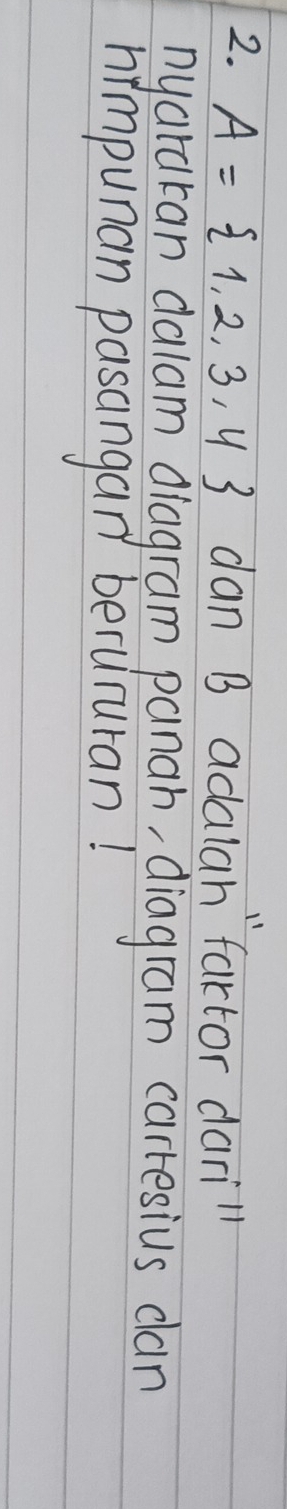 2. A = { 1, 2, 3, 4 } dan B adalah "faktor dari"
nyatakan dalam diagram panah, diagram cartesius dan
himpunan pasangan berurutan !